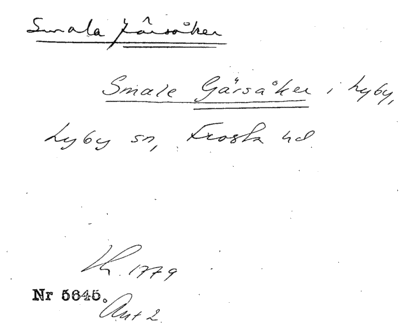 Smala Gårsåker
Smale Gårsåker i Lyby,
Lyby sn, Frosta hd
Lh. 1779
Nr 5645.
Akt 2